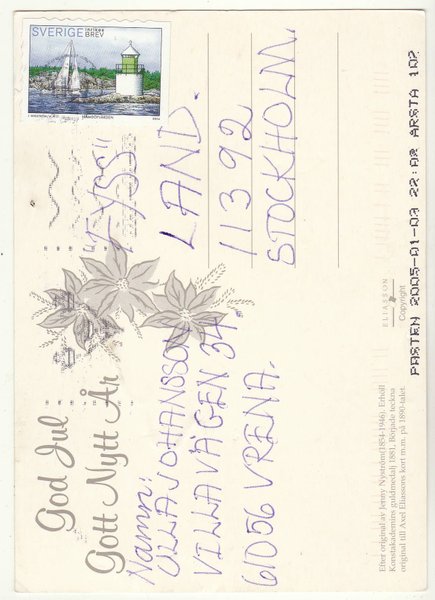 SVERIGE INRIKES
BREV
God Jul
Gott Nytt År
Namn:
ULLA JOHANSSON
VILLAVÄGEN 34
61056 VRENA.
"FYSS"
LAND.
11392
STOCKHOLM.
ELIASSON
Copyright
Efter original av Jenny Nyström(1854-1946). Erhöll
Konstakademins guldmedalj 1881. Började teckna
original till Axel Eliassons kort m.m. på 1890-talet.
POSTEN 2005-01-03 22:02 ARSTA 102